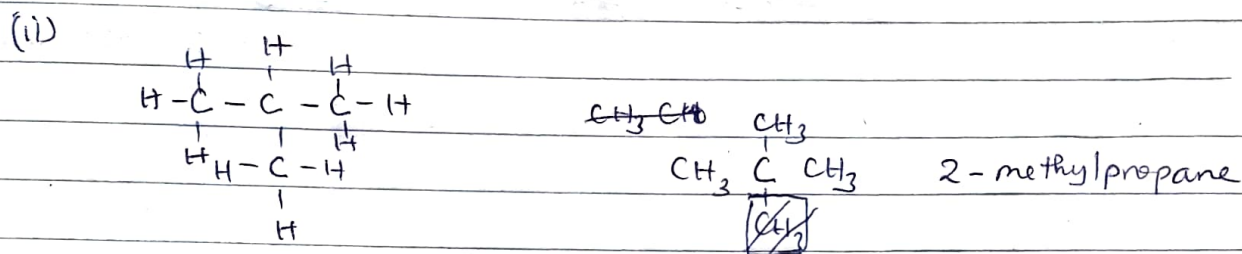 (ii)
H H H
H - C - C - C - H
H H
H - C - H
H
CH3 CH
CH3
CH3 C CH3 2 - methylpropane
CH3